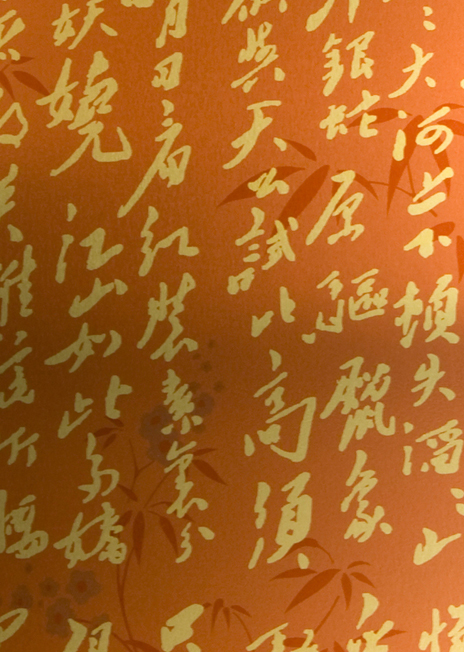 大河上下頓失滔〻山
銀蛇原驅臘象
與天公試比高須
日看紅裝素裹分
妖嬈江山如此多嬌
雄竞折腰